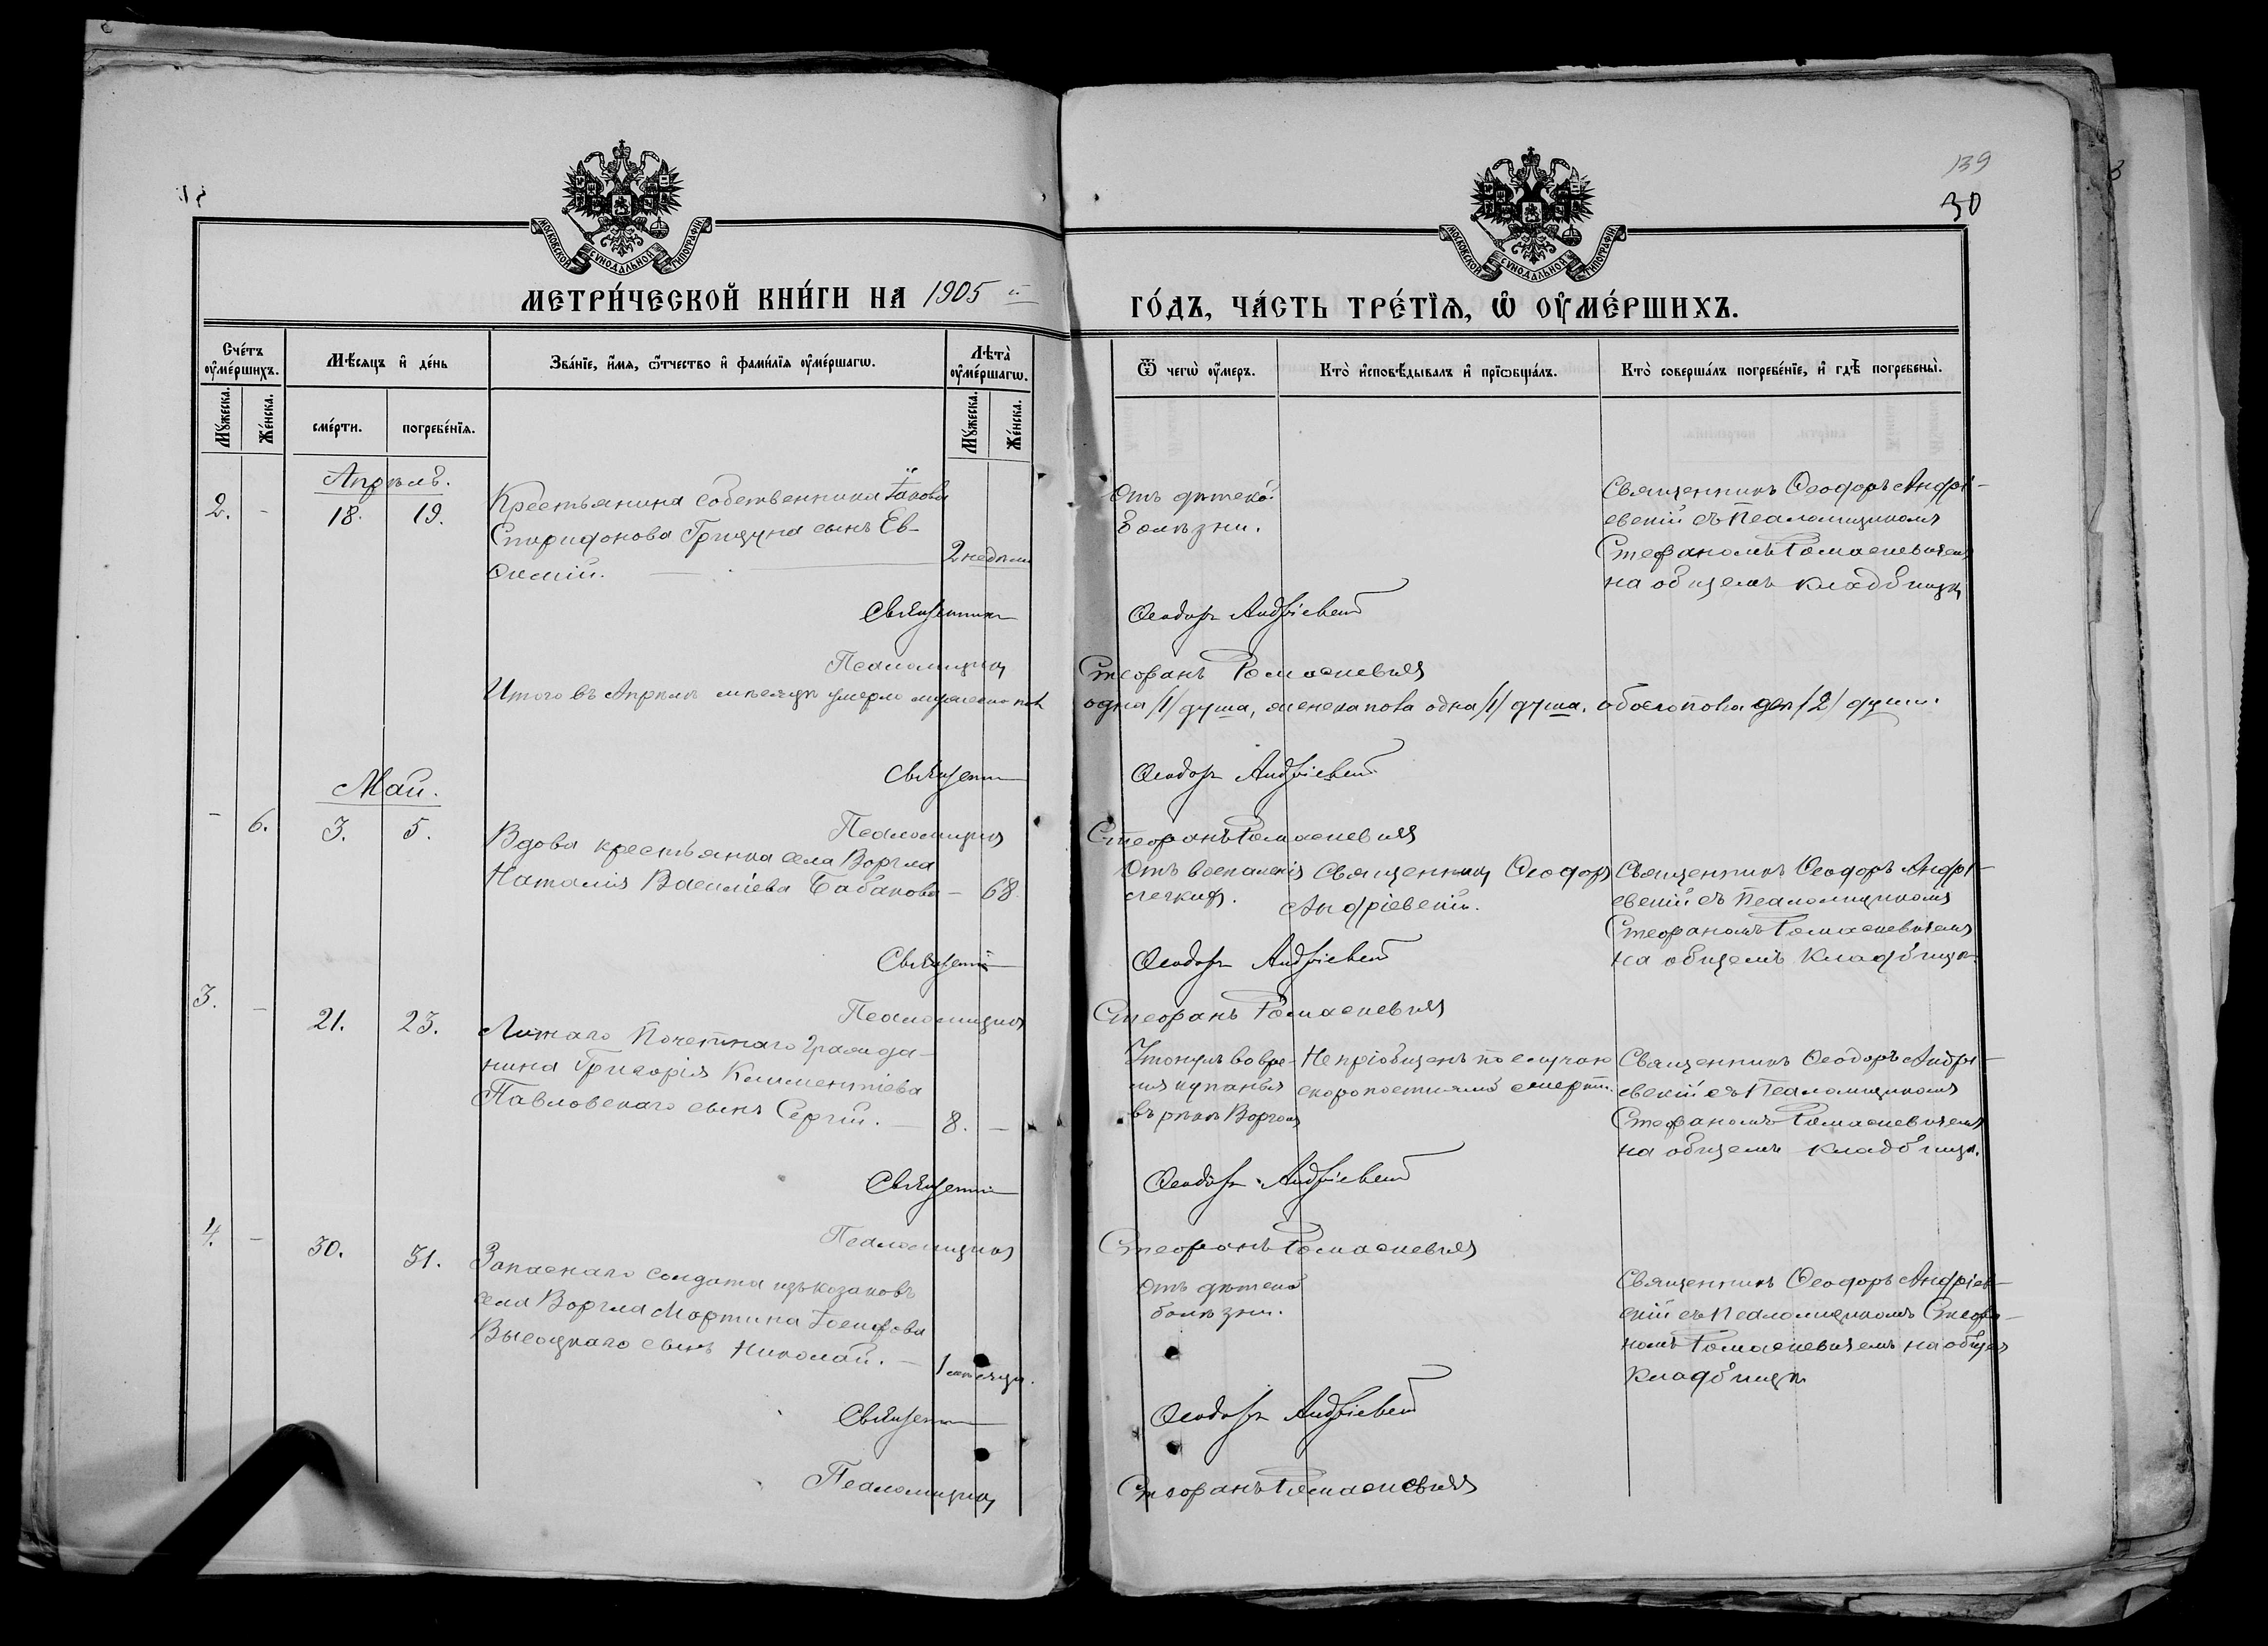 139
30
МОСКОВСКОЙ СѴНОДАЛЬНОЙ ТИПОГРАФІИ
МОСКОВСКОЙ СѴНОДАЛЬНОЙ ТИПОГРАФІИ
МЕТРИ́ЧЕСКОЙ КНИ́ГИ НА 1905 й
ГО́ДЪ, ЧА́СТЬ ТРЕ́ТІѦ, Ѡ҆ ОУ҆МЕ́РШИХЪ.
Сче́тъ оу҆ме́ршихъ.
Мѣ́сяцъ и҆ де́нь
Зва́нїе, и҆́мя, ѻ҆́тчество и҆ фами́лїя оу҆ме́ршагѡ.
Лѣ́та оу҆ме́ршагѡ.
Ѿ чегѡ̀ оу҆́меръ.
Кто̀ и҆сповѣ́дывалъ и҆ прїѡбща́лъ.
Кто̀ соверша́лъ погребе́нїе, и҆ гдѣ̀ погребены̀.
Му́жеска.
Же́нска.
сме́рти.
погребе́нїя.
Му́жеска.
Же́нска.
Апрѣль.
2. - 18. 19.
Крестьянина собственника Іакова
Спиридонова Грицуна сынъ Ев-
ѳимій.
2 недѣли
Отъ дѣтской
болѣзни.
Священникъ Ѳеодоръ Андрі-
евскій съ Псаломщикомъ
Стефаномъ Ромасевичемъ
на общемъ кладбищѣ
Священникъ Ѳеодоръ Андріевскій
Псаломщикъ Стефанъ Ромасевичъ
Итого въ Апрѣлѣ мѣсяцѣ умерло мужеска пола одна /1/ душа, женска пола одна /1/ душа. обоего пола двѣ /2/ души.
Священникъ Ѳеодоръ Андріевскій
Май.
Псаломщикъ Стефанъ Ромасевичъ
- 6. 3. 5.
Вдова крестьянка села Воргла
Наталія Василіева Бабакова - 68
Отъ воспаленія
легкихъ.
Священникъ Ѳеодоръ
Андріевскій.
Священникъ Ѳеодоръ Андрі-
евскій съ Псаломщикомъ
Стефаномъ Ромасевичемъ
на общемъ кладбищѣ.
Священникъ Ѳеодоръ Андріевскій
Псаломщикъ Стефанъ Ромасевичъ
3. - 21. 23.
Личнаго Почетнаго Гражда-
нина Григорія Климентіева
Павловскаго сынъ Сергій. - 8. -
Утонулъ во вре-
мя купанья
въ рѣкѣ Ворголъ
Не пріобщенъ по случаю
скоропостижной смерти.
Священникъ Ѳеодоръ Андрі-
евскій съ Псаломщикомъ
Стефаномъ Ромасевичемъ
на общемъ кладбищѣ.
Священникъ Ѳеодоръ Андріевскій
Псаломщикъ Стефанъ Ромасевичъ
4. - 30. 31.
Запаснаго солдата изъ козаковъ
села Воргла Мартина Іосифова
Высоцкаго сынъ Николай. - 1 мѣсяцъ.
Отъ дѣтской
болѣзни.
Священникъ Ѳеодоръ Андріев-
скій съ Псаломщикомъ Стефа-
номъ Ромасевичемъ на общемъ
кладбищѣ
Священникъ Ѳеодоръ Андріевскій
Псаломщикъ Стефанъ Ромасевичъ